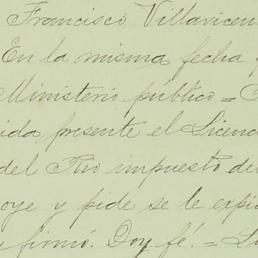 Francisco Villavicen
En la misma fecha
Ministerio público =
ida presente el Licenc
del Rio impuesto de
oye y pide se le expi
firmó. Doy fé. =